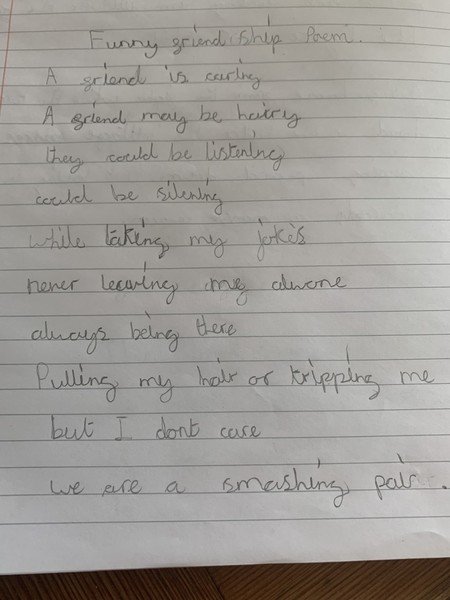 Funny friend ship Poem.
A friend is caring
A friend may be hairy
they could be listening
could be silening
while taking my jokes
never leaving me alwone
always being there
Pulling my hair or tripping me
but I dont care
we are a smashing pair.